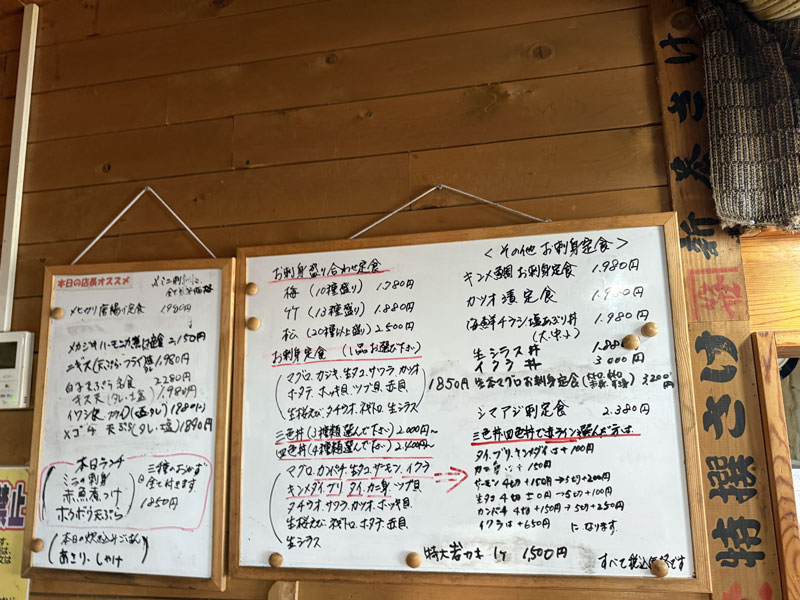 本日の店長オススメ
メヒカリ唐揚げ定食 1980円
メカジキハーモニカ煮付定食 2,150円
ニギス(天ぷら・フライ)定食 1,980円
白子天ぷら定食 2280円
キス天(タレ・塩) 1,980円
メゴチ天ぷら(タレ・塩) 1890円
本日ランチ
ミニ刺身
赤魚煮つけ
ホウボウ天ぷら
三種のおかず
全て付きます
1850円
本日の炊き込みごはん
あさり・しゃけ
お刺身盛り合わせ定食
梅(10種盛り) 1.780円
竹(13種盛り) 1.880円
松(20種以上盛り) 2.500円
お刺身定食(1品お選び下さい)
マグロ、カジキ、生タコ、サワラ、カツオ
ホタテ、ホッキ貝、ツブ貝、赤貝
生桜えび、タチウオ、ネギトロ、生シラス
1850円
三色丼(3種類選んで下さい) 2.000円~
四色丼(4種類選んで下さい) 2.400円~
マグロ、カンパチ、生タコ、サーモン、イクラ
キンメダイ、ブリ、タイ、カニ身、ツブ貝
タチウオ、サワラ、カツオ、ホッキ貝
生桜えび、ネギトロ、ホタテ、赤貝
生シラス
<その他 お刺身定食>
キンメ鯛お刺身定食 1.980円
カツオ漬定食 1.980円
海鮮チラシ塩あぶり丼 1.980円
生シラス丼 1.880円
イクラ丼 3000円
生本マグロお刺身定食 3200円
シマアジ刺定食 2.380円
三色丼、四色丼で赤ラインを選んだ方は、
タイ、ブリ、キンメダイは+100円
カニ身は+150円
サーモン4切+150円→5切+200円
生タコ4切±0円→5切+100円
カンパチ4切+150円→5切+250円
イクラは+650円 になります。
特大岩カキ 1ヶ 1,500円
すべて税込価格です
新巻さけ
特撰さけ
禁止